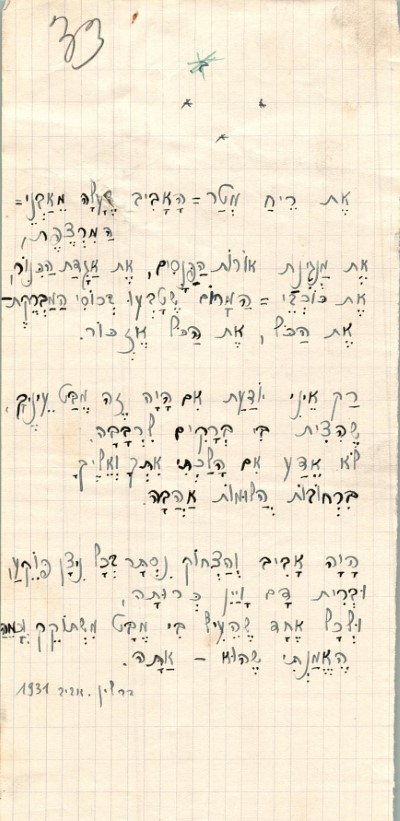 33
אֶת רֵיחַ מְטַר=הָאָבִיב שֶׁעָלָה מֵאַבְנֵי=
הַמִּרְצֶפֶת,
אֶת מַנְגִּינַת אוֹרוֹת הַפַּנָּסִים, אֶת אַגָּדַת הַכִּנּוֹר,
אֶת כּוֹכְבֵי=הַמָּרוֹם שֶׁטָּבְעוּ בְּכוֹסִי הַמַּבְרֶקֶת–
אֶת הַכֹּל, אֶת הַכֹּל אֶזְכּוֹר.
רַק אֵינִי יוֹדַעַת אִם הָיָה זֶה מַבַּט עֵינֶיךָ,
שֶׁהִצִּית בִּי בְּרָקִים לִרְבָבָה.
לֹא אֵדַע אִם הָלַכְתִּי אִתְּךָ וְאֵלֶיךָ
בִּרְחוֹבוֹת הֲלוּמוֹת אַהֲבָה.
הָיָה אָבִיב וְהַצְּחוֹק נִסְתַּר בְּכָל נִיצָן פּוֹקֵעַ,
וּבְרִית דָּם וָיַיִן כְּרוּתָה,
וּלְכָל אֶחָד שֶׁהֵעִיף בִּי מַבָּט מִשְׁתּוֹקֵק וְכָמֵהַּ
הֶאֱמַנְתִּי שֶׁהוּא – אַתָּה.
ברלין. אביב 1931